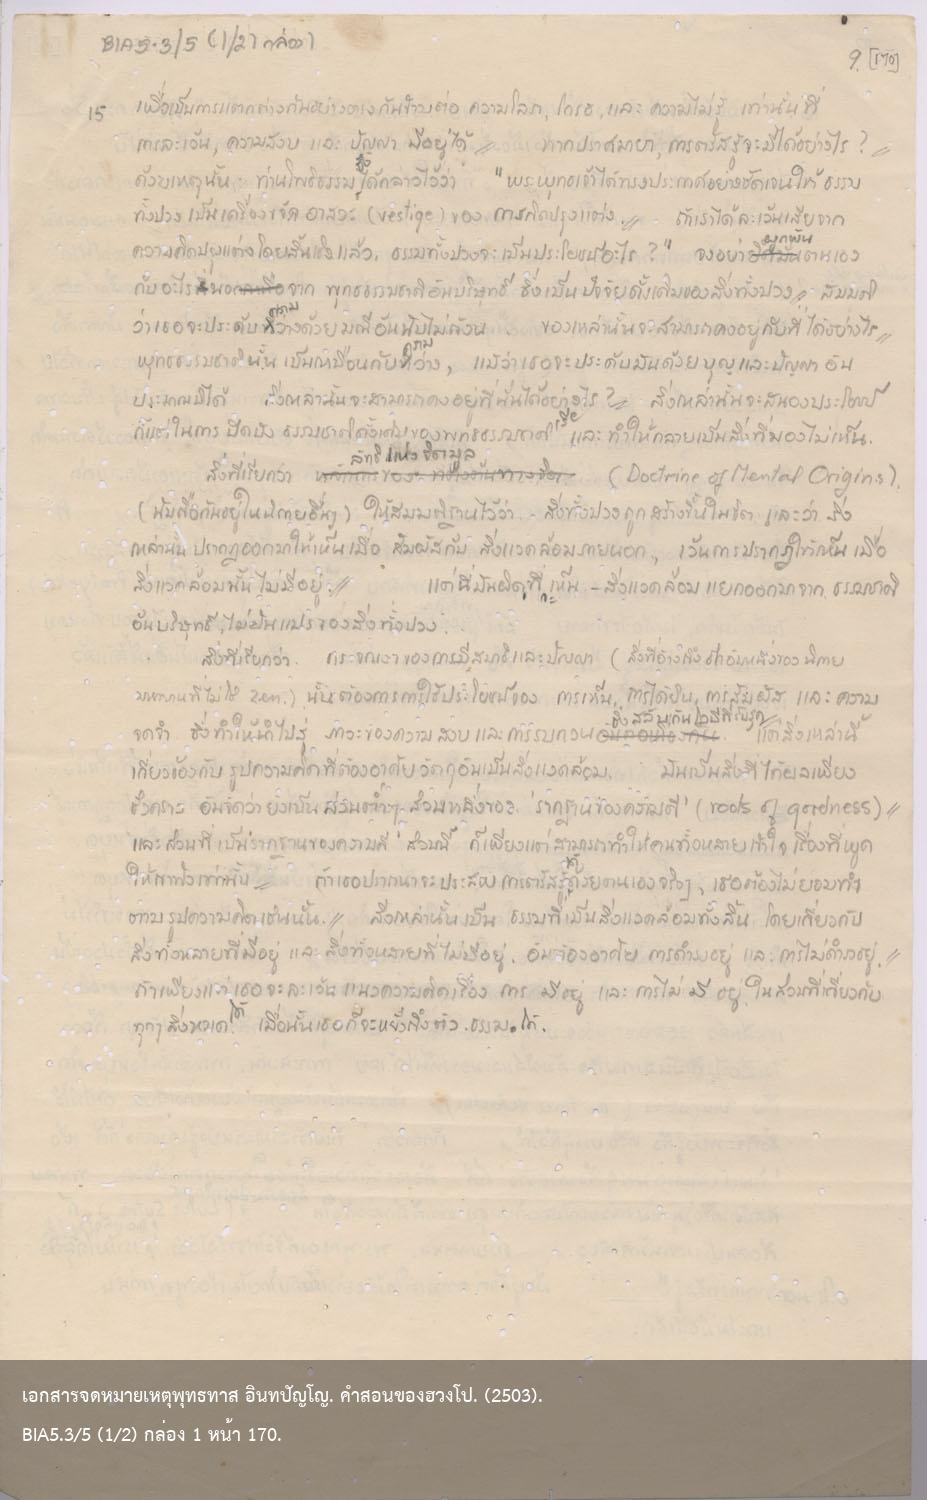 BIA5.3/5 (1/2) กล่อง 1
9. [170]
15 เพื่อเป็นการแตกต่างกันอย่างตรงกันข้ามต่อ ความโลภ, โกรธ, และ ความไม่รู้ เท่านั้น ที่
การละเว้น, ความสงบ และ ปัญญา มีอยู่ได้ // หากปราศมายา, การตรัสรู้จะมีได้อย่างไร ? //
ด้วยเหตุนั้น ท่านโพธิธรรม จึงได้กล่าวไว้ว่า "พระพุทธเจ้าได้ทรงประกาศอย่างชัดเจนให้ ธรรม
ทั้งปวง เป็นเครื่องขจัด อาสวะ (vestige) ของ การคิดปรุงแต่ง // ถ้าเราได้ละเว้นเสียจาก
ความคิดปรุงแต่งโดยสิ้นเชิงแล้ว, ธรรมทั้งปวงจะเป็นประโยชน์อะไร ?" จงอย่าผูกพันตนเอง
กับอะไร จาก พุทธธรรมชาติอันบริษุทธิ์ ซึ่งเป็นปัจจัยดั้งเดิมของสิ่งทั้งปวง // สมมติ
ว่าเธอจะประดับที่ความว่างด้วยมณีอันนับไม่ถ้วน ของเหล่านั้นจะสามารถคงอยู่กับที่ได้อย่างไร //
พุทธธรรมชาตินั้น เป็นเหมือนกับความว่าง, แม้ว่าเธอจะประดับมันด้วย บุญและปัญญา อัน
ประมาณมิได้ สิ่งเหล่านั้นจะสามารถคงอยู่ที่นั่นได้อย่างไร ? // สิ่งเหล่านั้นจะสนองประโยชน์
ก็แต่ในการ ปิดบัง ธรรมชาติดั้งเดิมของพุทธธรรมชาติ เสีย และ ทำให้กลายเป็นสิ่งที่มองไม่เห็น.
สิ่งที่เรียกว่า ลัทธิแห่งจิตมูล (Doctrine of Mental Origins).
(นับถือกันอยู่ในนิกายอื่นๆ) ให้สมมติฐานไว้ว่า - สิ่งทั้งปวงถูกสร้างขึ้นในจิต และว่า สิ่ง
เหล่านั้น ปรากฏออกมาให้เห็นเมื่อ สัมผัสกับ สิ่งแวดล้อมภายนอก, เว้นการปรากฏให้เห็น เมื่อ
สิ่งแวดล้อมนั้น ไม่มีอยู่. // แต่นี่มันผิดที่จะเห็น - สิ่งแวดล้อม แยกออกมาจาก ธรรมชาติ
อันบริษุทธิ์, ไม่ผันแปรของสิ่งทั้งปวง.
สิ่งที่เรียกว่า กระจกเงาของการมีสมาธิและปัญญา (สิ่งที่อ้างถึงอีกอันหนึ่งของ นิกาย
มหายานที่ไม่ใช่ Zen.) นั้น ต้องการการใช้ประโยชน์ของ การเห็น, การได้ยิน, การสัมผัส และ ความ
จดจำ ซึ่งทำให้นำไปสู่ ภาวะของความสงบ และการรบกวน ซึ่งสลับกันไปไม่สิ้นสุด. แต่สิ่งเหล่านี้
เกี่ยวข้องกับ รูปความคิดที่ต้องอาศัย วัตถุอันเป็นสิ่งแวดล้อม. มันเป็นสิ่งที่ได้ผลเพียง
ชั่วคราว อันจัดว่ายังเป็น ส่วนต่ำๆ ส่วนหนึ่งของ 'รากฐานของความดี' (roots of goodness) //
และส่วนที่เป็นรากฐานของความดี ส่วนนี้ ก็เพียงแต่สามารถทำให้คนทั้งหลายเข้าใจ เรื่องที่พูด
ให้เขาฟังเท่านั้น // ถ้าเธอปรารถนาจะประสบ การตรัสรู้กับด้วยตนเองจริงๆ, เธอต้องไม่ยอมทำ
ตาม รูปความคิดเช่นนั้น. // สิ่งเหล่านั้นเป็น ธรรมที่เป็นสิ่งแวดล้อมทั้งสิ้น โดยเกี่ยวกับ
สิ่งทั้งหลายที่มีอยู่ และ สิ่งทั้งหลายที่ไม่มีอยู่. อันต้องอาศัย การดำรงอยู่ และ การไม่ดำรงอยู่. //
ถ้าเพียงแต่ เธอจะละเว้น แนวความคิดเรื่อง การ มีอยู่ และ การไม่ มี อยู่ ในส่วนที่เกี่ยวกับ
ทุกๆ สิ่งหมดได้ เมื่อนั้นเธอก็จะหยั่งถึงตัว ธรรม ได้.
เอกสารจดหมายเหตุพุทธทาส อินทปัญโญ. คำสอนของฮวงโป. (2503).
BIA5.3/5 (1/2) กล่อง 1 หน้า 170.